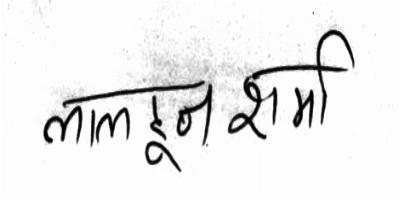 लाल शर्मा